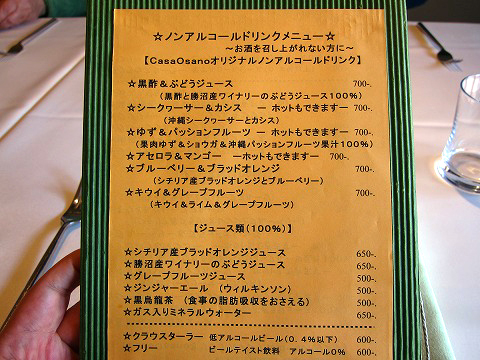 ☆ノンアルコールドリンクメニュー☆
～お酒を召し上がれない方に～
【CasaOsanoオリジナルノンアルコールドリンク】
☆黒酢＆ぶどうジュース 700-.
（黒酢と勝沼産ワイナリーのぶどうジュース１００％）
☆シークヮーサー＆カシス ー ホットもできますー 700-.
（沖縄シークヮーサーとカシス）
☆ゆず＆パッションフルーツ ー ホットもできますー 700-.
（果肉ゆず＆ショウガ＆沖縄パッションフルーツ果汁１００％）
☆アセロラ＆マンゴー ーホットもできますー 700-.
☆ブルーベリー＆ブラッドオレンジ 700-.
（シチリア産ブラッドオレンジとブルーベリー）
☆キウイ＆グレープフルーツ 700-.
（キウイ＆ライム＆グレープフルーツ）
【ジュース類（１００％）】
☆シチリア産ブラッドオレンジジュース 650-.
☆勝沼産ワイナリーのぶどうジュース 650-.
☆グレープフルーツジュース 500-.
☆ジンジャーエール （ウィルキンソン） 500-.
☆黒烏龍茶 （食事の脂肪吸収をおさえる） 500-.
☆ガス入りミネラルウォーター 650-.
☆クラウスターラー 低アルコールビール（０．４％以下） 600-.
☆フリー ビールテイスト飲料 アルコール０％ 600-.